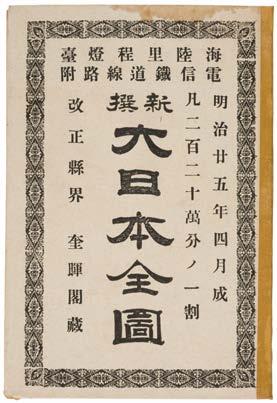 海陸里程燈臺
電信鐵道線路附
明治廿五年四月成
凡二百二十萬分ノ一割
新撰
大日本全圖
改正縣界 奎暉閣藏